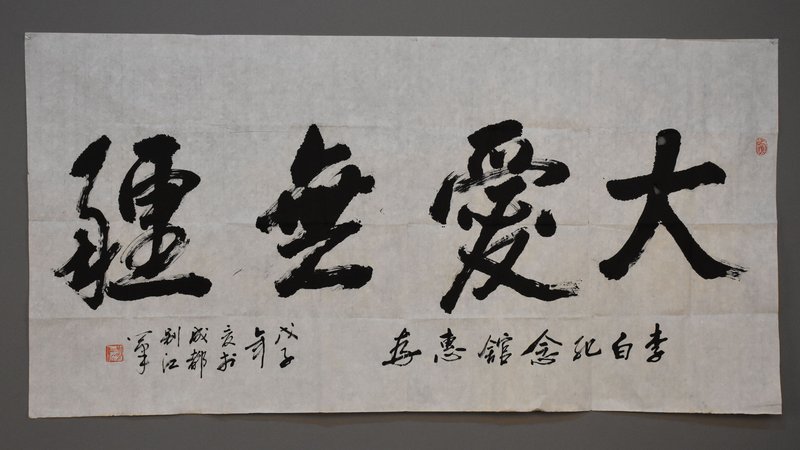 大愛無疆
李白紀念館惠存
戊子
年
夏於
成都
劉江